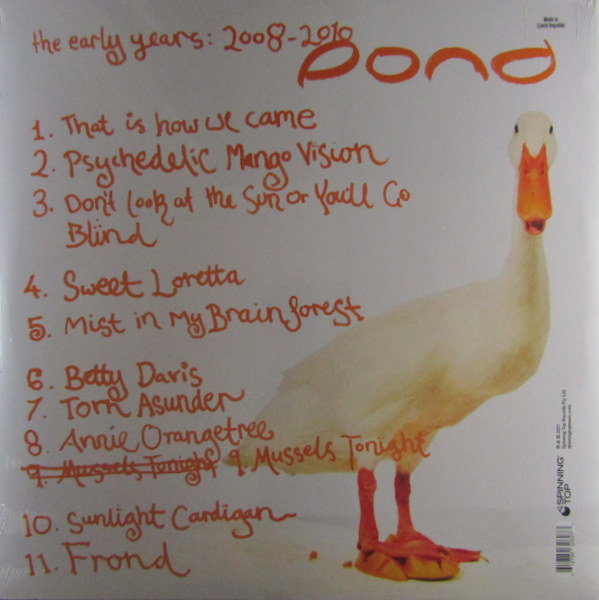 the early years: 2008-2010
pond
Made in
Czech Republic
1. That is how we came
2. Psychedelic Mango Vision
3. Don't Look at the Sun or You'll Go
Blind
4. Sweet Loretta
5. Mist in My Brain forest
6. Betty Davis
7. Torn Asunder
8. Annie Orangetree
9. Mussels Tonight 9. Mussels Tonight
10. Sunlight Cardigan
11. Frond
SPINNING
TOP